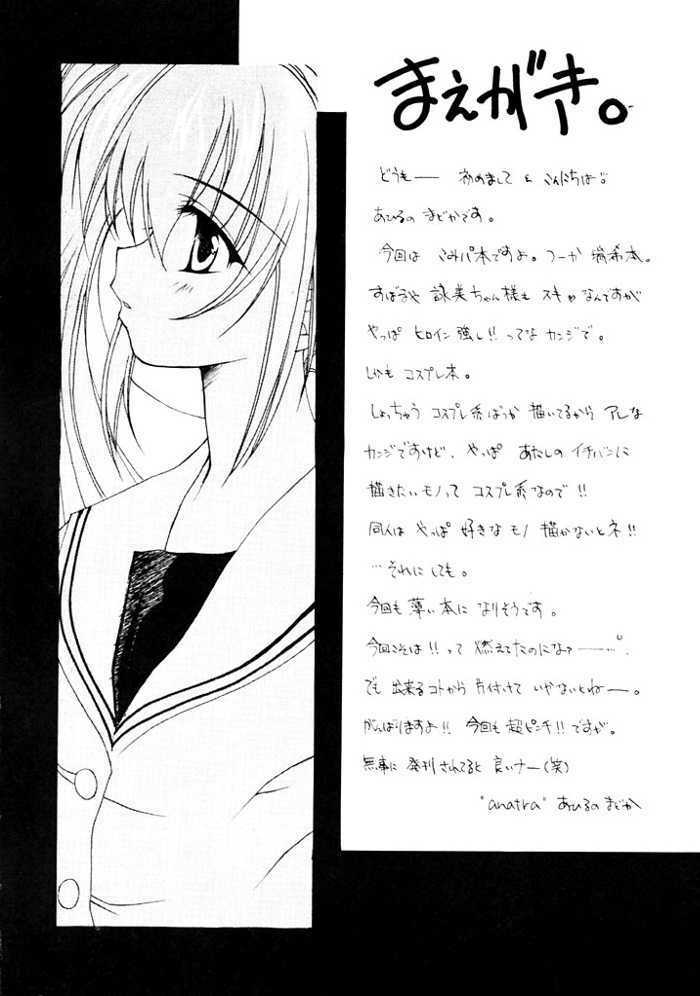 まえがき。
どうも―― 初めまして & こんにちは。
あひるの まどかです。
今回は こみパ本ですよ。つーか 瑞希本。
すばるや 詠美ちゃん様も スキなんですが
やっぱ ヒロイン強し!! ってな カンジで。
しかも コスプレ本。
しょっちゅう コスプレ系ばっか 描いてるから アレな
カンジですけど、やっぱ あたしの イチバンに
描きたいモノって コスプレ系なので!!
同人は やっぱ 好きなモノ 描かないとネ!!
…それにしても。
今回も 薄い本に なりそうです。
今回こそは!! って 燃えてたのになァ――…。
でも 出来るコトから 片付けて いかないとねー。
がんばりますよ!! 今回も 超ピンチ!! ですが。
無事に 発刊されてると 良いナー(笑)
"anatra" あひるの まどか